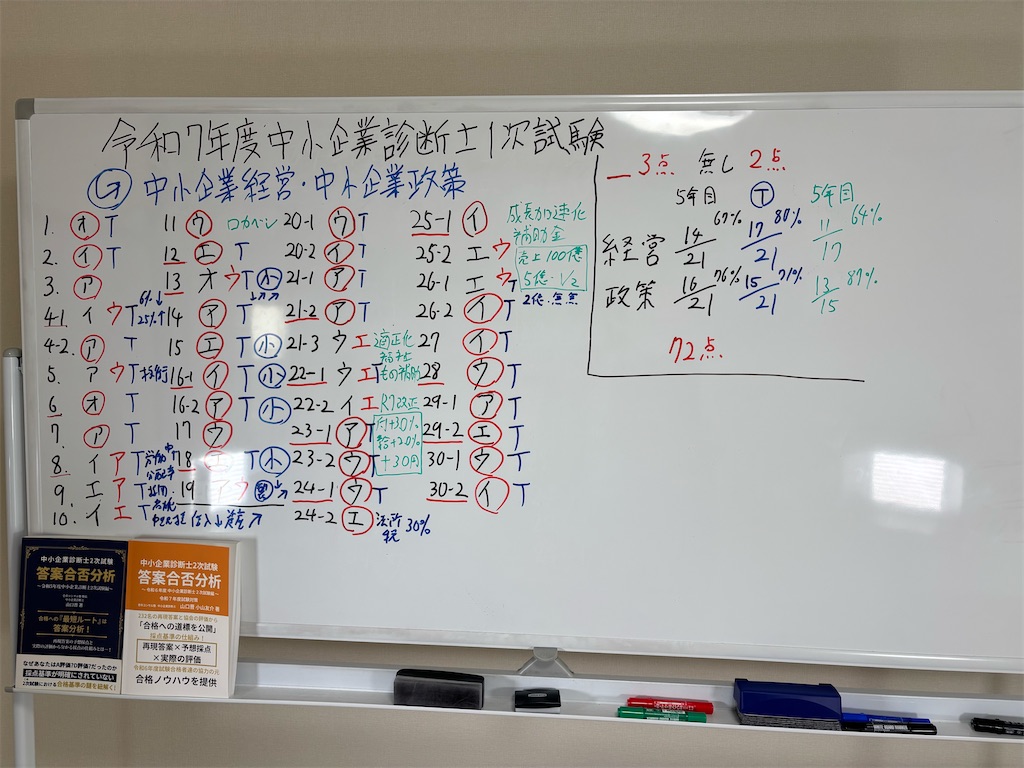 令和7年度中小企業診断士1次試験
G 中小企業経営・中小企業政策
1. オ T
2. イ T
3. ア
41 イ ウ T 6%↓ 25%↑
4-2. ア T
5. ア ウ T 技術
6 オ T
7 ア T
8. イ ア T
9. エ ア T
10. イ エ T
11 ウ ロカベン
12 エ T
13 オ ウ T 小
14 ア T
15 エ T 小
16-1 イ T 小
16-2 ア T 小
17 ウ
18 エ T 小
19 ア ウ
20-1 ウ T
20-2 イ T
21-1 ア T
21-2 ア T
21-3 ウ エ 適正化
福祉
もの補助
22-1 ウ エ T
22-2 イ エ R7改正
付+30%
給+20%
+30円
23-1 ア T
23-2 ウ T
24-1 ウ T
24-2 エ 法所税 30%
25-1 イ
25-2 エ ウ
26-1 エ ウ T
26-2 イ T
27 イ T
28 ウ T
29-1 ア T
29-2 エ T
30-1 ウ T
30-2 イ T
成長加速化
補助金
売上100億
5億・1/2
2代・無無
_ 3点 無し 2点
5年目 T 5年目
経営 14/21 67% 17/21 80% 11/17 64%
政策 16/21 76% 15/21 71% 13/15 87%
72点
中小企業診断士2次試験
答案合否分析
合格への『最短ルート』は
答案分析!
なぜあなたはA評価?D評価?だったのか
採点基準が明確にされていない
2次試験における合格基準の謎を紐解く!
中小企業診断士2次試験
答案合否分析
令和7年度試験対策
山口晋 小山友介 著
232名の再現答案と協会の評価から
「合格への道標を公開」
採点基準の仕組み!
再現答案×予想採点
×実際の評価
令和6年度試験合格者達の協力の元
合格ノウハウを提供